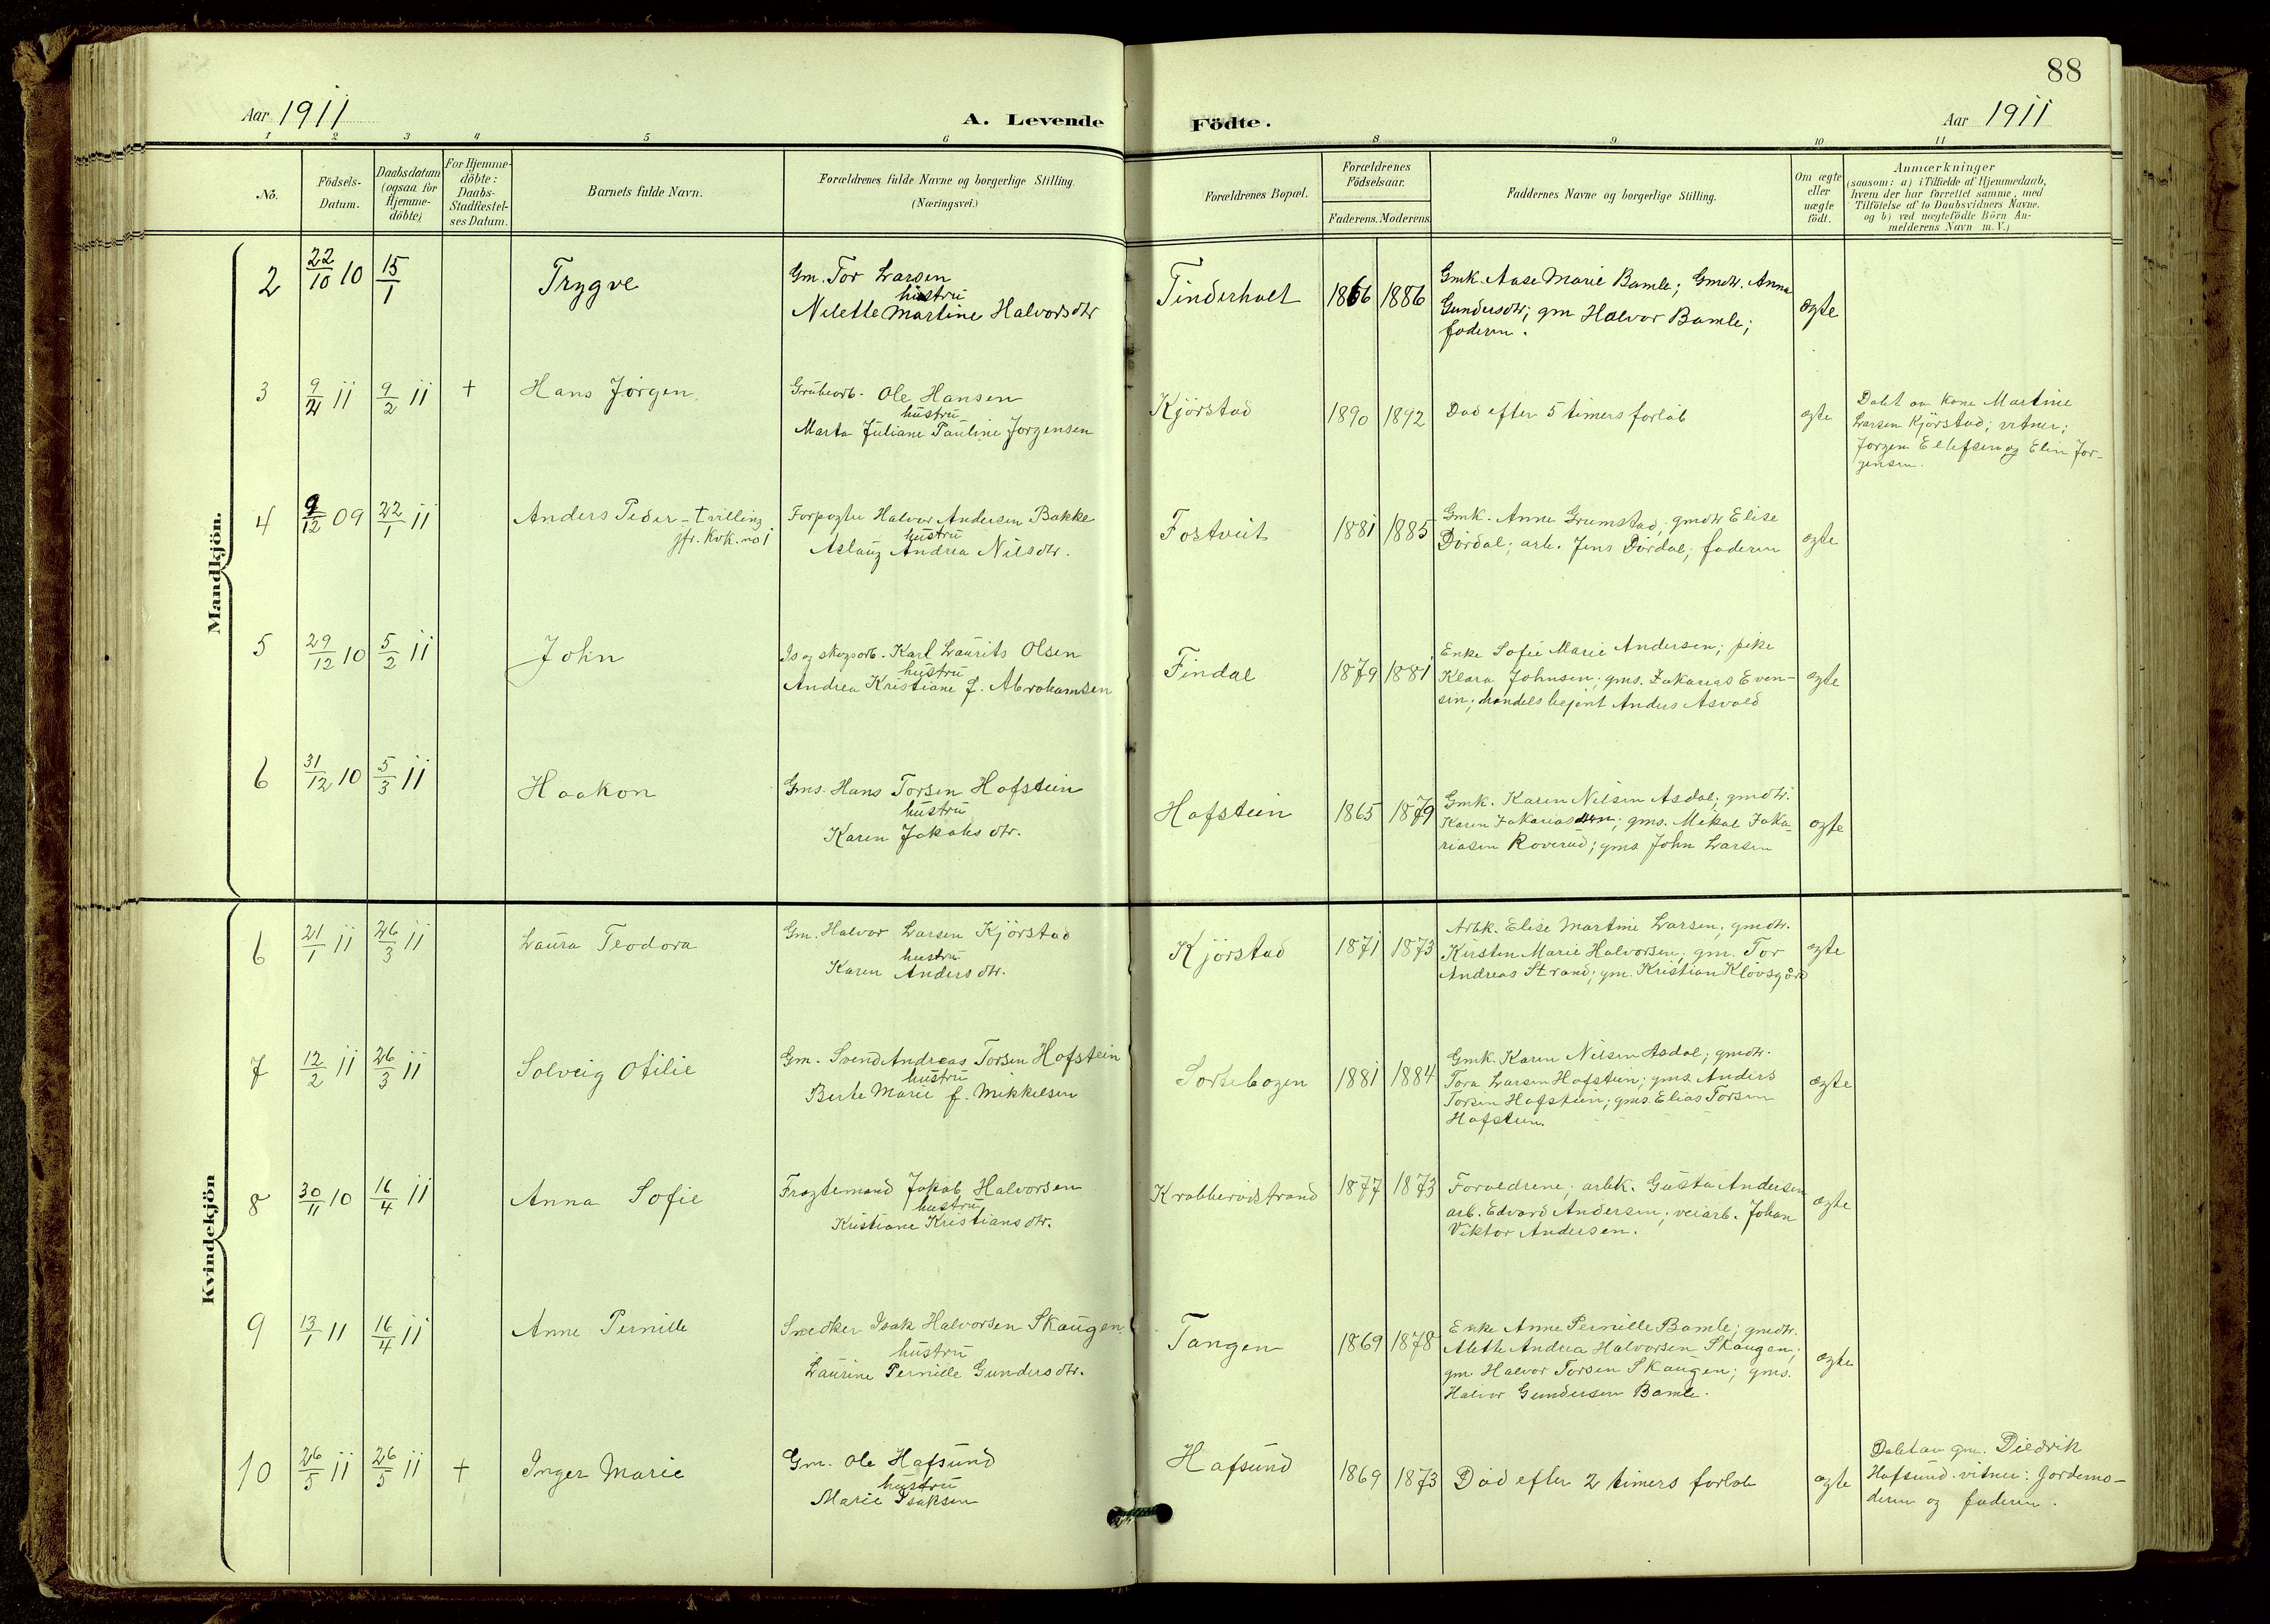 88
Aar 1911
A. Levende Födte.
Aar 1911
1 2 3 4 5 6 8 9 10 11
No.
Födsels-
Datum.
Daabsdatum
(ogsaa for
Hjemme-
döbte)
For Hjemme-
döbte:
Daabs-
Stadfæstel-
ses Datum.
Barnets fulde Navn.
Forældrenes fulde Navne og borgerlige Stilling.
(Næringsvei.)
Forældrenes Bopæl.
Forældrenes
Födselsaar.
Faderens. Moderens
Faddernes Navne og borgerlige Stilling.
Om ægte
eller
uægte
födt.
Anmærkninger
(saasom: a) i Tilfælde af Hjemmedaab,
hvem der har forrettet samme, med
Tilföielse af to Daabsvidners Navne.
og b) ved uægtefödte Börn An-
melderens Navn m. V.)
Mandkjön.
2
22/10 10
15/1
Trygve
Gm. Tor Larsen
hustru
Nilette Martine Halvorsdtr
Tinderholt
1866 1886
Gmk. Aase Marie Bamle; Gmdtr. Anna
Gundersdtr; gm Halvor Bamle;
faderen.
ægte
3
9/2 11
9/2 11
+
Hans Jörgen
Grubearb. Ole Hansen
hustru
Marta Juliane Pauline Jorgensen
Kjörstad
1890 1892
Död efter 5 timers forløb
ægte
Döbt av kone Martine
Larsen Kjörstad; vitner;
Jorgen Ellefsen og Elin Jor-
gensen.
4
9/12 09
22/1 11
Anders Peder - tvilling
jfr. kvk. no 1
Forpagter Halvor Andersen Bakke
hustru
Aslaug Andrea Nilsdtr.
Fostveit
1881 1885
Gmk. Anne Grumstad; gmdtr Elise
Dördal; arb. Jens Dördal; faderen
ægte
5
29/12 10
5/2 11
John
Is og skogsarb. Karl Laurits Olsen
hustru
Andrea Kristiane f. Abrahamsen
Findal
1879 1881
Enke Sofie Marie Andersen; pike
Klara Johnsen; gms. Zakarias Even-
sen; handelsbetjent Anders Asvald
ægte
6
31/12 10
5/3 11
Haakon
Gms. Hans Torsen Hafstein
hustru
Karen Jakobsdtr.
Hafstein
1865 1879
Gmk. Karen Nilsen Asdal; gmdtr.
Karen Zakariassen; gms. Mekal Zaka-
riasen Roverud; gms John Larsen
ægte
Kvindekjön
6
21/1 11
26/3 11
Laura Teodora
Gm. Halvor Larsen Kjörstad
hustru
Karen Andersdtr.
Kjörstad
1871 1873
Arbk. Elise Martine Larsen; gmdtr.
Kirsten Marie Halvorsen; gm. Tor
Andreas Strand; gm. Kristian Klövsgård
ægte
7
12/2 11
26/3 11
Solveig Otilie
Gm. Svend Andreas Torsen Hofstein
hustru
Berte Marie f. Mikkelsen
Sortebogen
1881 1884
Gmk. Karen Nilsen Asdal; gmdtr.
Tora Larsen Hafstein; gms. Anders
Torsen Hafstein; gms. Elias Torsen
Hafstein.
ægte
8
30/11 10
16/4 11
Anna Sofie
Fragtemand Jakob Halvorsen
hustru
Kristiane Kristiansdtr.
Krabberødstrand
1877 1873
Forældrene; arbk. Gusta Andersen
arb. Edvard Andersen; veiarb. Johan
Viktor Andersen.
ægte
9
13/1 11
16/4 11
Anne Pernille
Snedker Isak Halvorsen Skaugen
hustru
Laurine Pernille Gundersdtr.
Tangen
1869 1878
Enke Anne Pernille Bamle; gmdtr.
Alette Andrea Halvorsen Skaugen;
gm. Halvor Torsen Skaugen; gms.
Halvor Gundersen Bamle.
ægte
10
26/5 11
26/5 11
+
Inger Marie
Gm. Ole Hafsund
hustru
Marie Isaksen
Hafsund
1869 1873
Död efter 2 timers forløb
ægte
Döbt av gm. Diedrik
Hafsund. vitner: Jordemo-
deren og faderen.